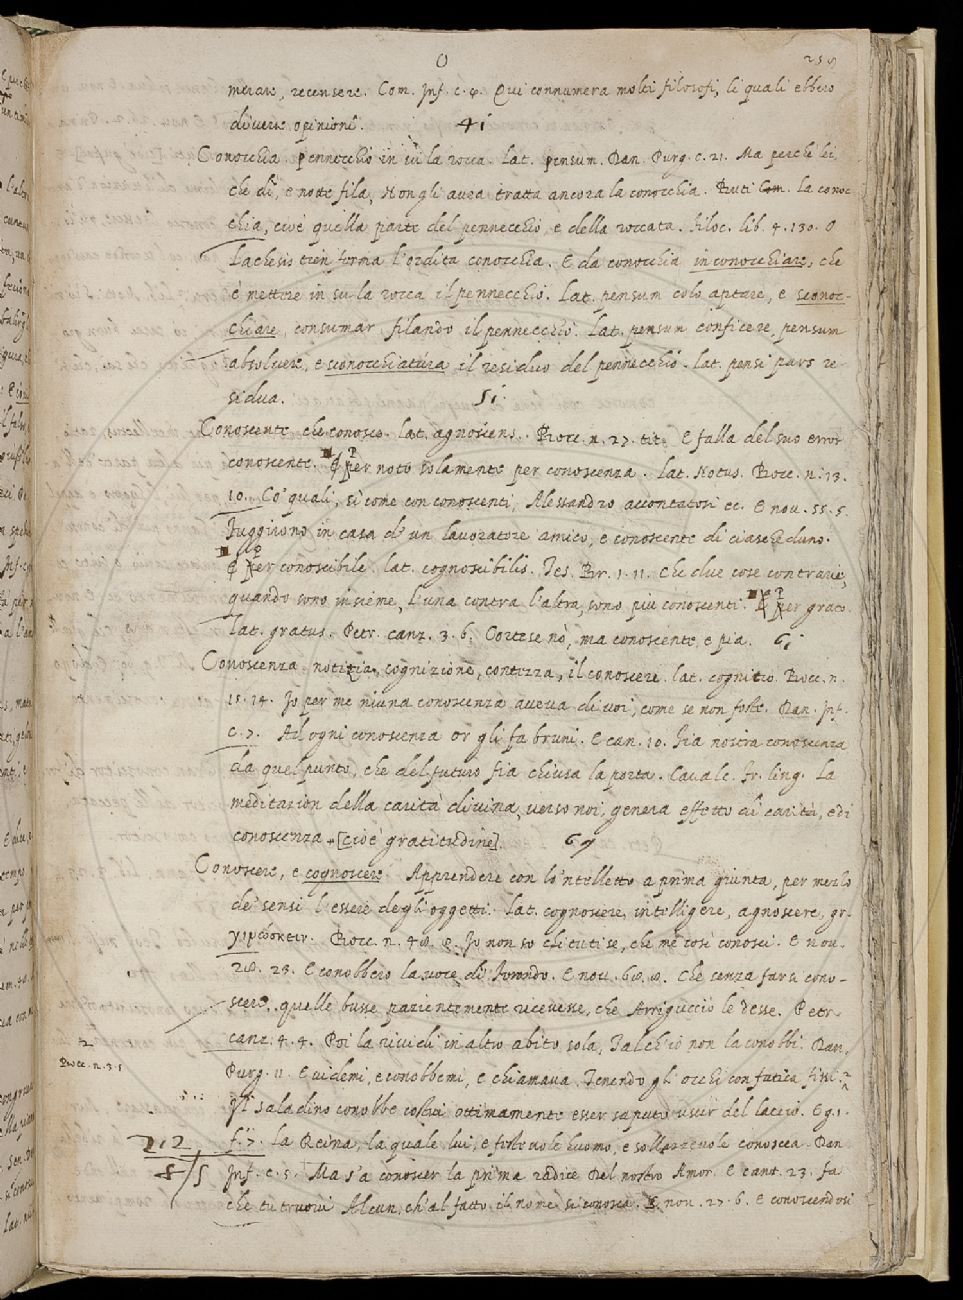 O 259
merare, recensere. Com. Inf. c. 4. Qui connumera molti filosofi, li quali ebbero
diverse opinioni. 4i
Conocchia. pennecchio in su la rocca. Lat. pensum. Dan. Purg. c. 21. Ma perchè lei,
che dì, e notte fila, Non gli avea tratta ancora la conocchia. Buti Com. La conoc-
chia, cioè quella parte del pennecchio, e della roccata. Filoc. lib. 4. 130. O
Lachesis tien forma l'ordita conocchia. E da conocchia inconocchiare, che
è mettere in su la rocca il pennecchio. Lat. pensum colo aptare, e sconoc-
chiare, consumar filando il pennecchio. Lat. pensum conficere, pensum
absolvere, e sconocchiatura il residuo del pennecchio. Lat. pensi pars re-
sidua. 5i
Conoscente che conosce. lat. agnoscens. Bocc. n. 27. tit. E falla del suo error
conoscente. ¶ per noto solamente per conoscenza. Lat. Notus. Bocc. n. 13.
10. Co' quali, sì come con conoscenti, Alessandro accontatosi ec. E nov. 55. 5.
Fuggirono in casa d'un lavoratore amico, e conoscente di ciascheduno.
¶ per conoscibile. lat. cognoscibilis. Tes. Br. 1. 11. Che due cose contrarie,
quando sono insieme, l'una contra l'altra, sono più conoscenti. ¶ per grato.
Lat. gratus. Petr. canz. 3. 6. Cortese nò, ma conoscente, e pia. 6i
Conoscenza notizia, cognizione, contezza, il conoscere. lat. cognitio. Bocc. n.
15. 14. Io per me niuna conoscenza aveva di voi, come se non foste. Dan. Inf.
c. 7. Ad ogni conoscenza or gli fa bruni. E can. 10. Fia nostra conoscenza
da quel punto, che del futuro fia chiusa la porta. Cavalc. fr. ling. La
meditazion della carità divina, verso noi, genera effetto di carità, e di
conoscenza. [cioè gratitudine]. 6
Conoscere, e cognoscere Apprendere con lo 'ntelletto a prima giunta, per mezzo
de' sensi l'essere degli oggetti. Lat. cognoscere, intelligere, agnoscere, gr.
γιγνώσκειν. Bocc. n. 48. 8. Io non so chi tu ti se', che me così conosci. E nov.
28. 23. E conobbero la voce di Ferondo. E nov. 68. 8. Che senza farsi cono-
scere, quelle busse pazientemente ricevesse, che Arriguccio le desse. Petr.
canz. 4. 4. Poi la rividi in altro abito sola, Tal ch'io non la conobbi. Dan.
Purg. 11. E videmi, e conobbemi, e chiamava, Tenendo gli occhi con fatica fisi.
Bocc. n. 3. 5
Il Saladino conobbe costui ottimamente esser saputo uscir del laccio. E g. 1.
212
f. 7. La Reina, la quale lui, e festevole huomo, e sollazzevole conoscea. Dan.
5/5 Inf. c. 5. Ma s'a conoscer la prima radice Del nostro Amor. E cant. 23. fa
che tu truovi Alcun, ch'al fatto, il nome si conosca. E nov. 27. 6. E conoscendosi